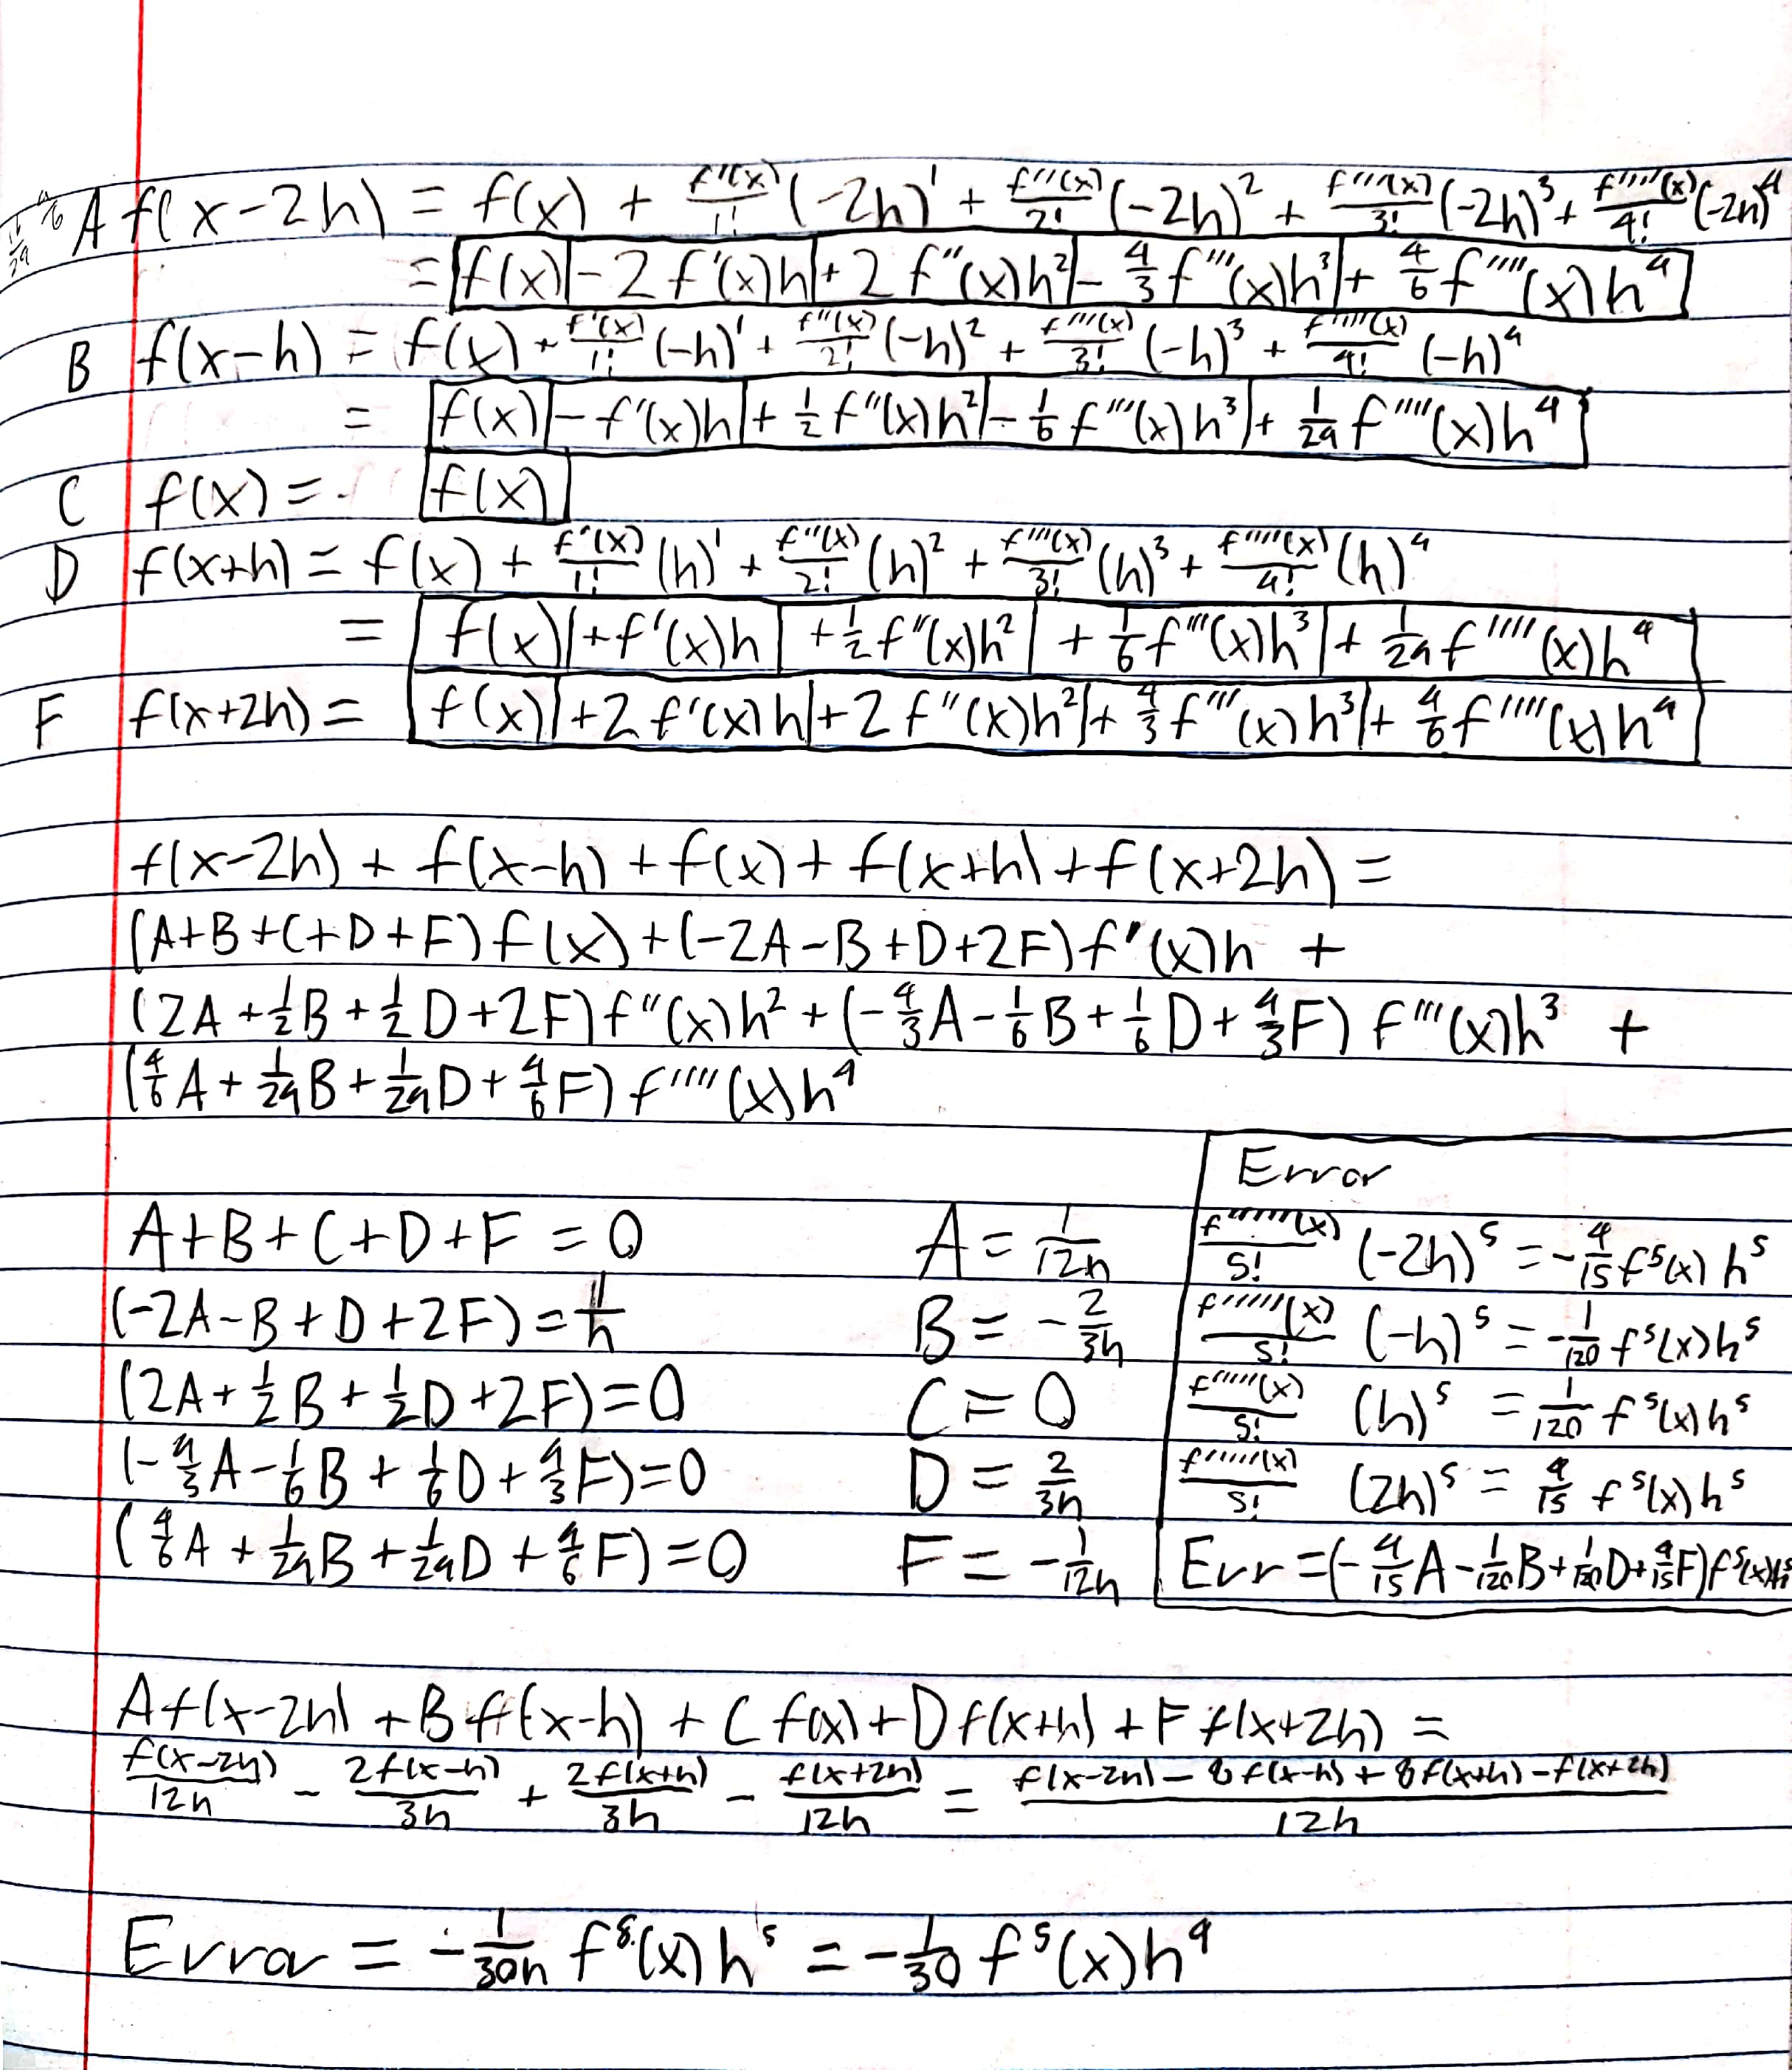 A f(x-2h) = f(x) + f'(x)/1! (-2h)^1 + f''(x)/2! (-2h)^2 + f'''(x)/3! (-2h)^3 + f''''(x)/4! (-2h)^4
= f(x) - 2f'(x)h + 2f''(x)h^2 - 4/3 f'''(x)h^3 + 4/6 f''''(x)h^4
B f(x-h) = f(x) + f'(x)/1! (-h)^1 + f''(x)/2! (-h)^2 + f'''(x)/3! (-h)^3 + f''''(x)/4! (-h)^4
= f(x) - f'(x)h + 1/2 f''(x)h^2 - 1/6 f'''(x)h^3 + 1/24 f''''(x)h^4
C f(x) = f(x)
D f(x+h) = f(x) + f'(x)/1! (h)^1 + f''(x)/2! (h)^2 + f'''(x)/3! (h)^3 + f''''(x)/4! (h)^4
= f(x) + f'(x)h + 1/2 f''(x)h^2 + 1/6 f'''(x)h^3 + 1/24 f''''(x)h^4
F f(x+2h) = f(x) + 2f'(x)h + 2f''(x)h^2 + 4/3 f'''(x)h^3 + 4/6 f''''(x)h^4
f(x-2h) + f(x-h) + f(x) + f(x+h) + f(x+2h) =
(A+B+C+D+F) f(x) + (-2A-B+D+2F) f'(x)h +
(2A + 1/2 B + 1/2 D + 2F) f''(x)h^2 + (-4/3 A - 1/6 B + 1/6 D + 4/3 F) f'''(x)h^3 +
(4/6 A + 1/24 B + 1/24 D + 4/6 F) f''''(x)h^4
A+B+C+D+F = 0
(-2A-B+D+2F) = 1/h
(2A + 1/2 B + 1/2 D + 2F) = 0
(-4/3 A - 1/6 B + 1/6 D + 4/3 F) = 0
(4/6 A + 1/24 B + 1/24 D + 4/6 F) = 0
A = 1/12h
B = -2/3h
C = 0
D = 2/3h
F = -1/12h
Error
f'''''(x)/5! (-2h)^5 = -4/15 f^5(x) h^5
f'''''(x)/5! (-h)^5 = -1/120 f^5(x)h^5
f'''''(x)/5! (h)^5 = 1/120 f^5(x)h^5
f'''''(x)/5! (2h)^5 = 4/15 f^5(x)h^5
Err = (-4/15 A - 1/120 B + 1/120 D + 4/15 F) f^5(x)h^5
A f(x-2h) + B f(x-h) + C f(x) + D f(x+h) + F f(x+2h) =
f(x-2h)/12h - 2f(x-h)/3h + 2f(x+h)/3h - f(x+2h)/12h = f(x-2h) - 8f(x-h) + 8f(x+h) - f(x+2h)/12h
Error = -1/30h f^5(x)h^5 = -1/30 f^5(x)h^4